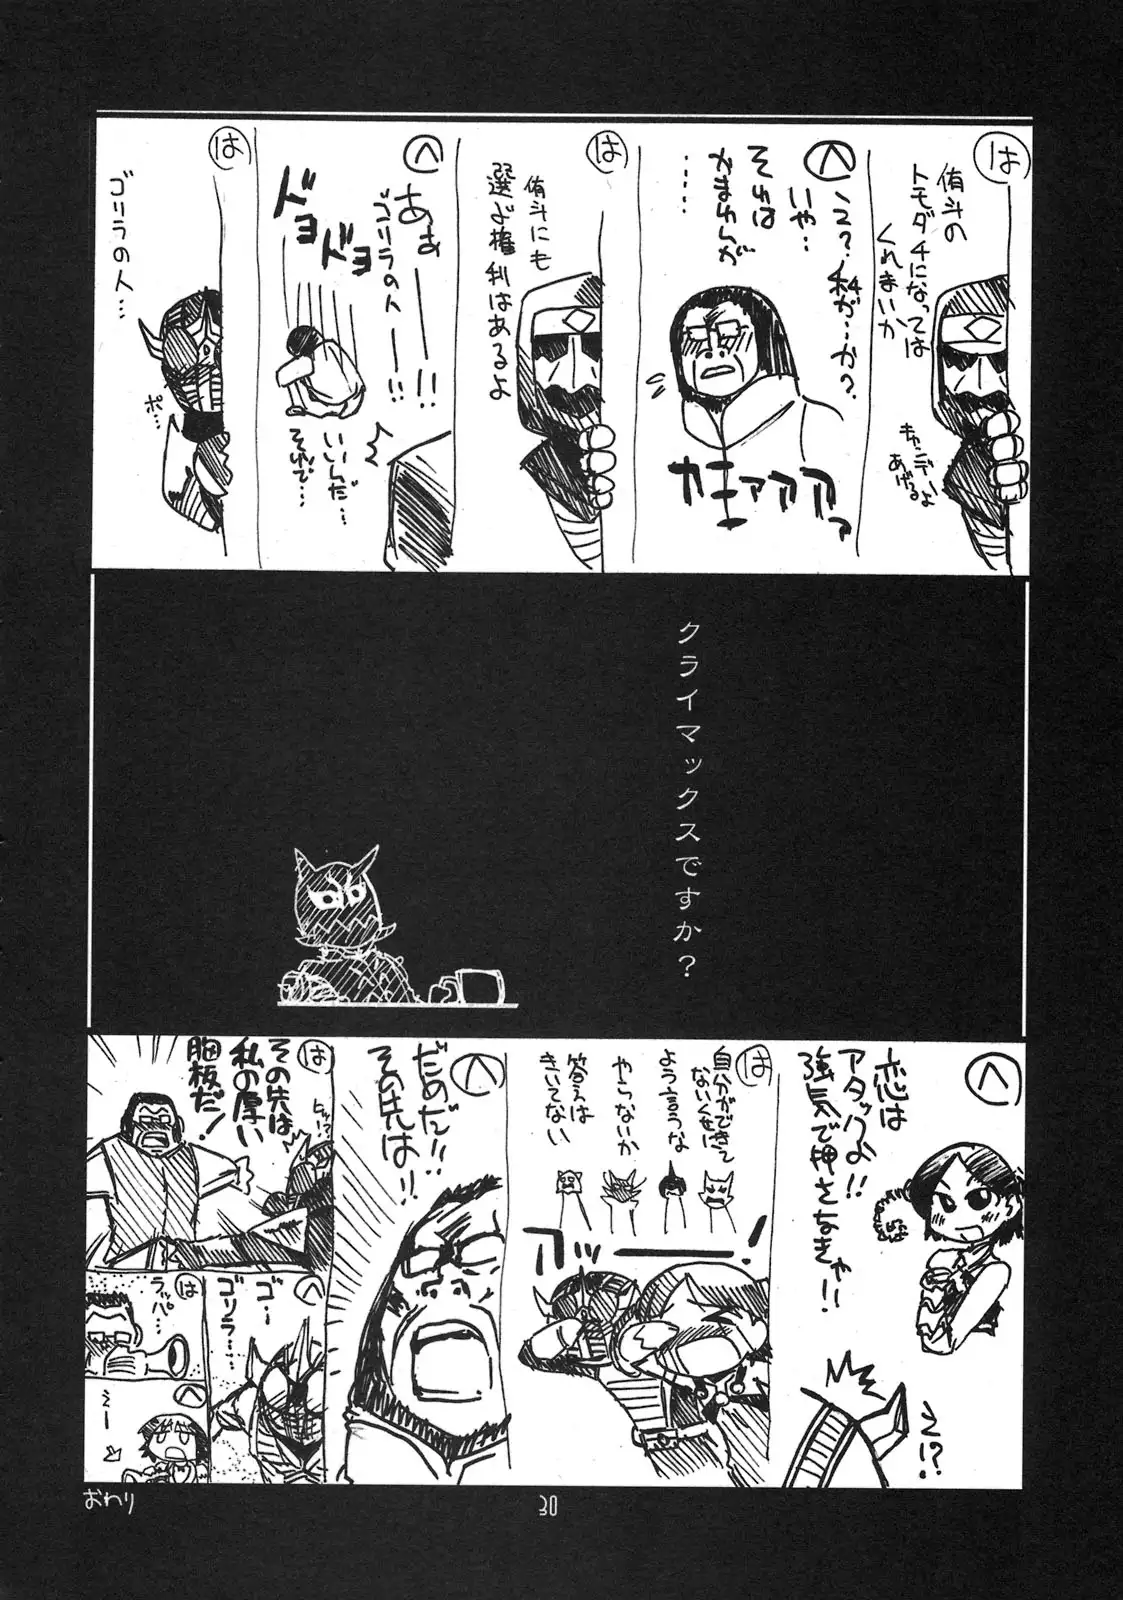 は
侑斗の
トモダチになっては
くれまいか
キャンディーよ
あげるよ
へ
え?私が…か?
いや…
それは
かまわんが
……
カアァァァァ
は
侑斗にも
選ぶ権利はあるよ
へ
あぁーー!!
ゴリラの人ーー!!
ドヨドヨ
いいんだ…
それで…
は
ゴリラの人…
ポ…
クライマックスですか?
へ
恋は
アタックよ!!
強気で押さなきゃ!!
え!?
は
自分ができて
ないくせに
よう言うな
やらないか
答えは
きいてない
アッーー!
へ
だめだ!!
その先は!!
は
その先は
私の厚い
胸板だ!
ヒッ!?
へ
ゴー
ゴリラ……
は
ラッパ…
へ
えー
おわり
30